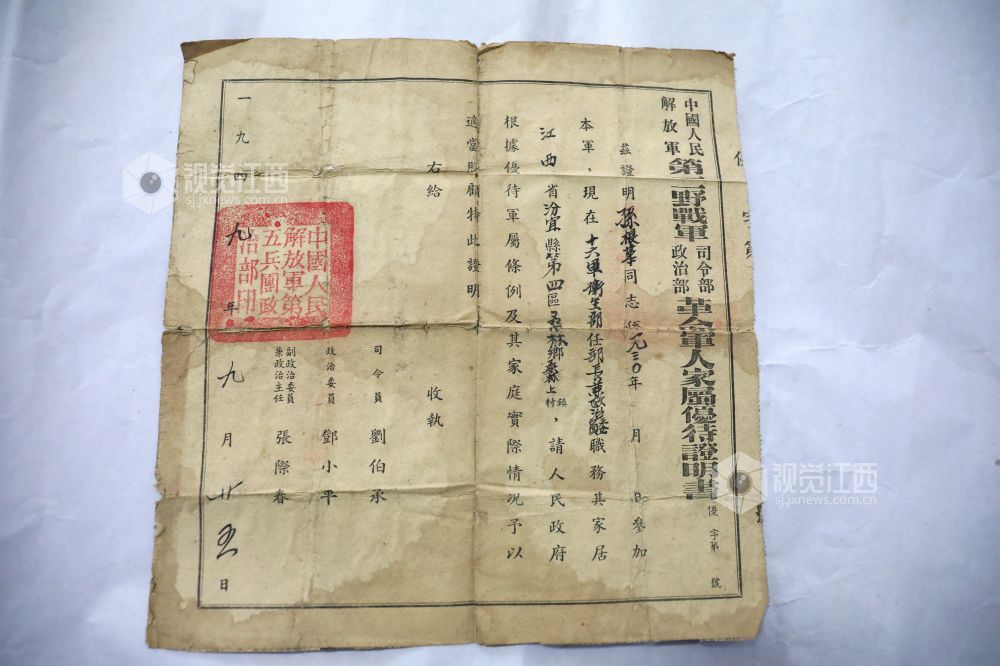 中國人民
解放軍
第二野戰軍
司令部
政治部
革命軍人家屬優待證明書
優字第 號
茲證明孫根華同志係一九三〇年 月 日參加
本軍，現在十六軍衛生部任部長兼政治委員職務其家居
江西省汾宜縣第四區 林鄉 上村鎮，請人民政府
根據優待軍屬條例及其家庭實際情況予以
適當照顧特此證明
右給 收執
司令員 劉伯承
政治委員 鄧小平
副政治委員
兼政治主任 張際春
一九四九年九月廿五日
中國人民
解放軍第
五兵團政
治部印
視觉江西
sj.jxnews.com.cn
視觉江西
sj.jxnews.com.cn